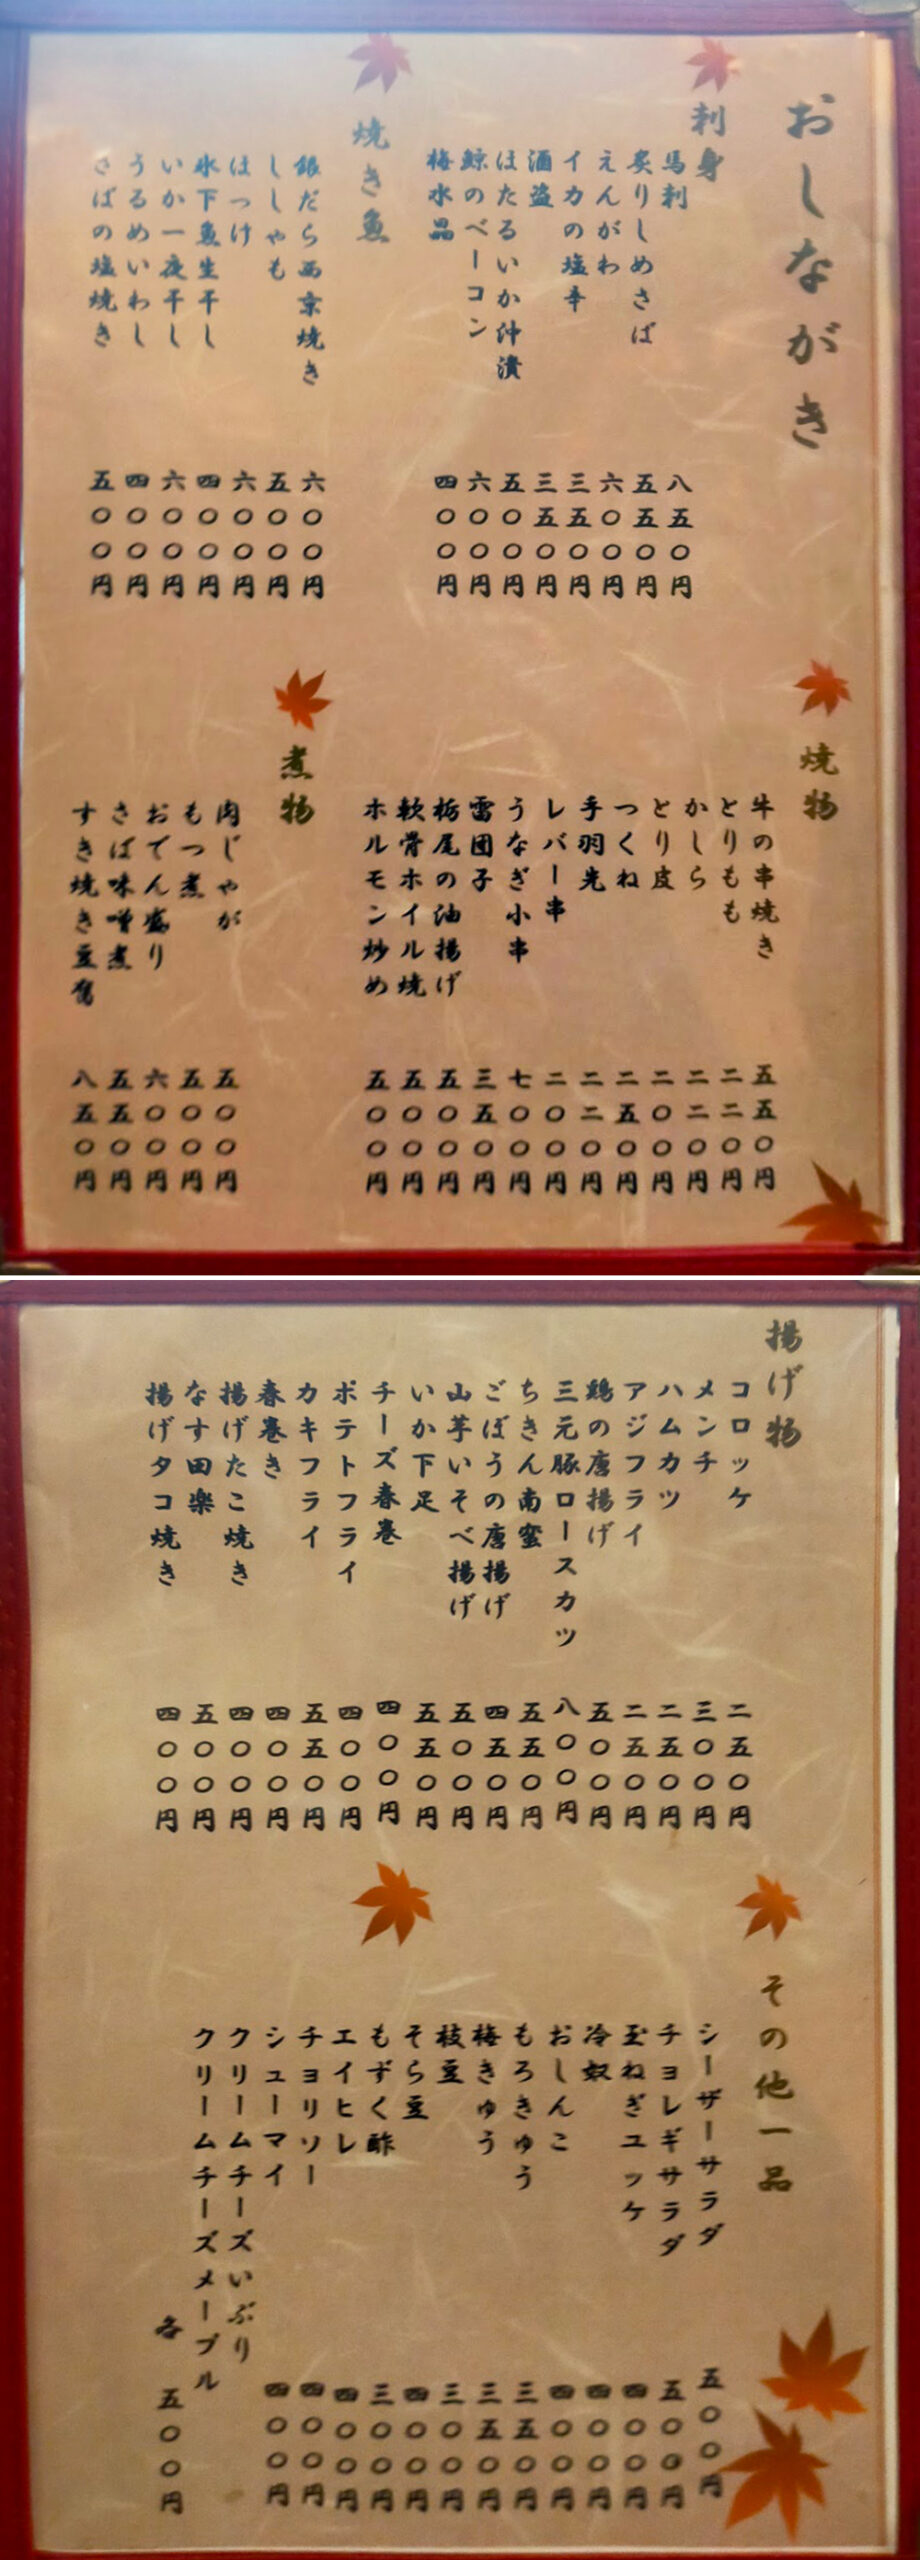 おしながき
刺身
馬刺 八五〇円
炙りしめさば 五五〇円
えんがわ 六〇〇円
イカの塩辛 三五〇円
酒盗 三五〇円
ほたるいか沖漬 五〇〇円
鯨のベーコン 六〇〇円
梅水晶 四〇〇円
焼き魚
銀だら西京焼き 六〇〇円
ししゃも 五〇〇円
ほっけ 六〇〇円
氷下魚生干し 四〇〇円
いか一夜干し 六〇〇円
うるめいわし 四〇〇円
さばの塩焼き 五〇〇円
焼物
牛の串焼き 五五〇円
とりもも 二二〇円
かしら 二二〇円
とり皮 二〇〇円
つくね 二五〇円
手羽先 二二〇円
レバー串 二〇〇円
うなぎ小串 七〇〇円
雷団子 三五〇円
栃尾の油揚げ 五〇〇円
軟骨ホイル焼 五〇〇円
ホルモン炒め 五〇〇円
煮物
肉じゃが 五〇〇円
もつ煮 五〇〇円
おでん盛り 六〇〇円
さば味噌煮 五五〇円
すき焼き豆腐 八五〇円
揚げ物
コロッケ 二五〇円
メンチ 三〇〇円
ハムカツ 二五〇円
アジフライ 二五〇円
鶏の唐揚げ 五〇〇円
三元豚ロースカツ 八〇〇円
ちきん南蛮 五五〇円
ごぼうの唐揚げ 四五〇円
山芋いそべ揚げ 五〇〇円
いか下足 五五〇円
チーズ春巻 四〇〇円
ポテトフライ 四〇〇円
カキフライ 五五〇円
春巻き 四〇〇円
揚げたこ焼き 四〇〇円
なす田楽 五〇〇円
揚げタコ焼き 四〇〇円
その他一品
シーザーサラダ 五〇〇円
チョレギサラダ 五〇〇円
玉ねぎユッケ 四〇〇円
冷奴 四〇〇円
おしんこ 四〇〇円
もろきゅう 三五〇円
梅きゅう 三五〇円
枝豆 三〇〇円
そら豆 四〇〇円
もずく酢 三〇〇円
エイヒレ 四〇〇円
チョリソー 四〇〇円
シューマイ 四〇〇円
クリームチーズいぶり
クリームチーズメープル
各 五〇〇円